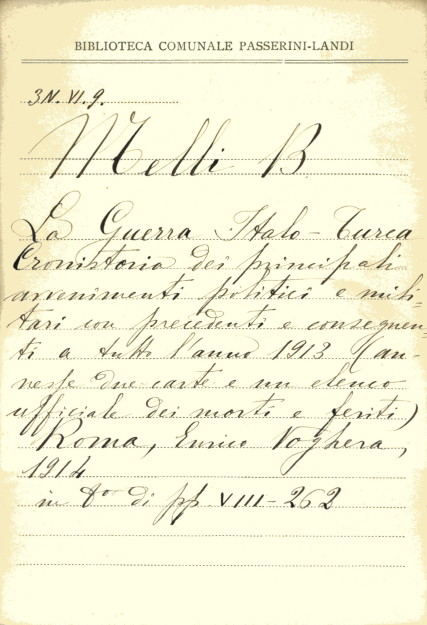 BIBLIOTECA COMUNALE PASSERINI-LANDI
3N. VI. 9.
Melli B
La Guerra Italo-Turca
Cronistoria dei principali
avvenimenti politici e mili-
tari con precedenti e conseguen-
ti a tutto l'anno 1913 (an-
nesse due carte e un elenco
ufficiale dei morti e feriti)
Roma, Enrico Voghera,
1914
in 8° di pp VIII-262